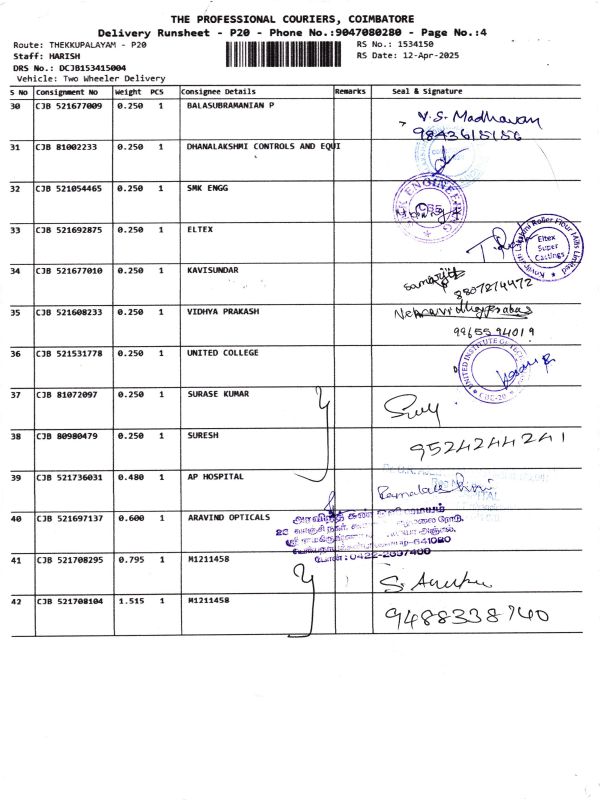 THE PROFESSIONAL COURIERS, COIMBATORE
Delivery Runsheet - P20 - Phone No.:9047080280 - Page No.:4
Route: THEKKUPALAYAM - P20
Staff: HARISH
DRS No.: DCJB153415004
Vehicle: Two Wheeler Delivery
RS No.: 1534150
RS Date: 12-Apr-2025
S No Consignment No Weight PCS Consignee Details Remarks Seal & Signature
30 CJB 521677009 0.250 1 BALASUBRAMANIAN P V.S. Madhavan
9843615156
31 CJB 81002233 0.250 1 DHANALAKSHMI CONTROLS AND EQUI
32 CJB 521054465 0.250 1 SMK ENGG
33 CJB 521692875 0.250 1 ELTEX Eltex Super Castings
34 CJB 521677010 0.250 1 KAVISUNDAR
8807274472
35 CJB 521608233 0.250 1 VIDHYA PRAKASH
9965594019
36 CJB 521531778 0.250 1 UNITED COLLEGE
37 CJB 81072097 0.250 1 SURASE KUMAR
38 CJB 80980479 0.250 1 SURESH 9524244241
39 CJB 521736031 0.480 1 AP HOSPITAL
40 CJB 521697137 0.600 1 ARAVIND OPTICALS
41 CJB 521708295 0.795 1 M1211458
42 CJB 521708104 1.515 1 M1211458 9488338740